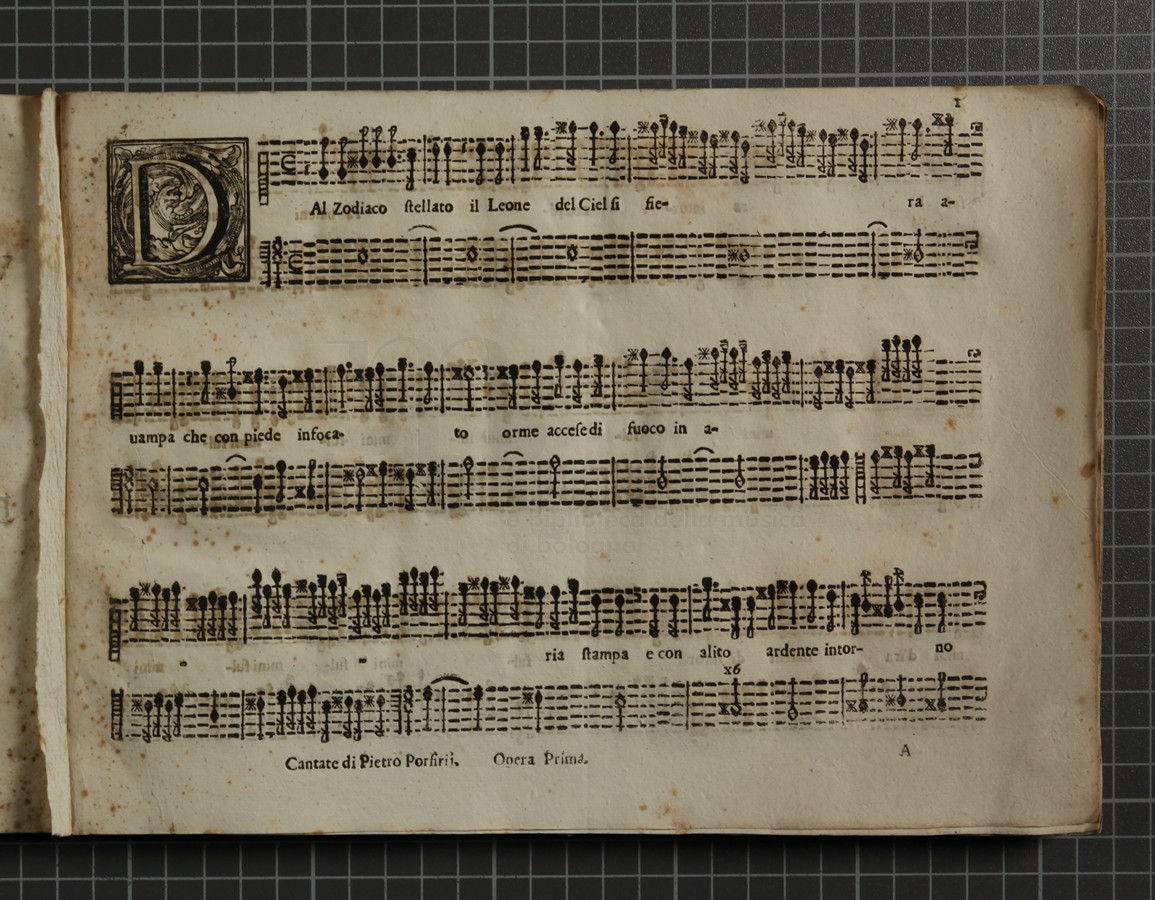 1
D
Al Zodiaco ſtellato il Leone del Ciel ſi fie- ra a-
uampa che con piede infoca- to orme acceſe di fuoco in a-
ria ſtampa e con alito ardente intor- no
x6
Cantate di Pietro Porfirij. Opera Prima. A
e biblioteca della musica
di bologna